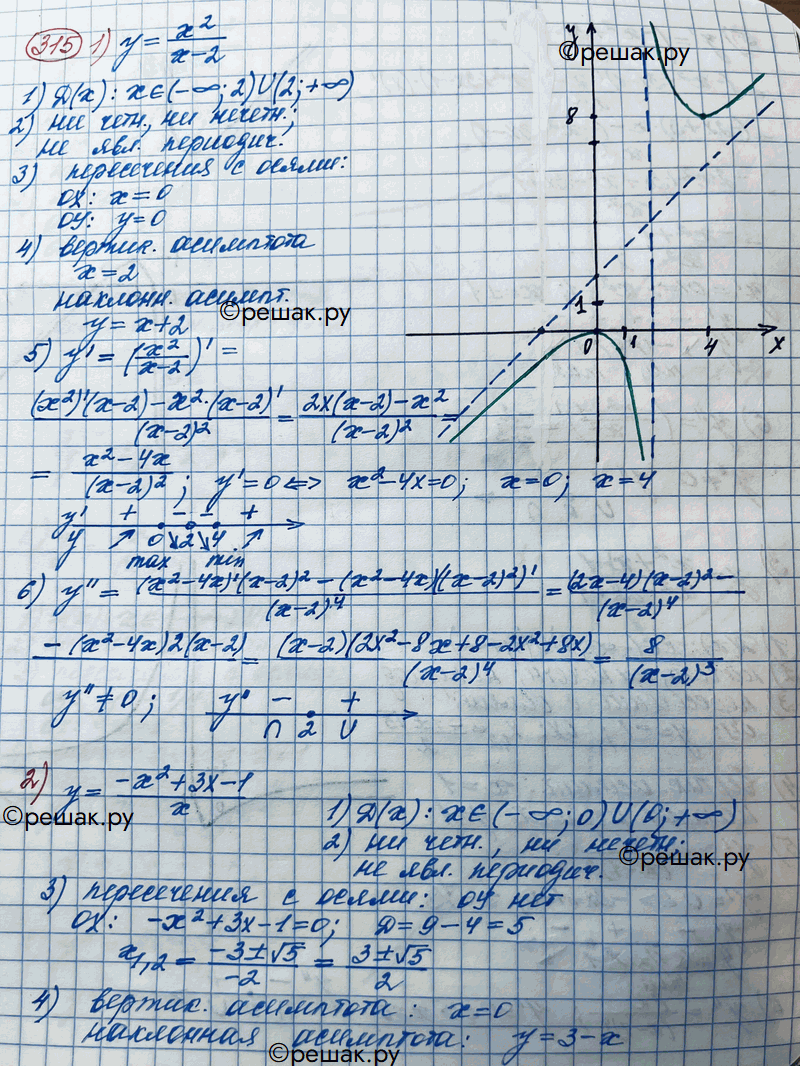 315 1) y = x²/(x-2)
©решак.ру
1) D(x): x∈(-∞; 2)∪(2; +∞)
2) ни четн., ни нечетн.;
не явл. периодич.
3) пересечения с осями:
ох: x = 0
оу: y = 0
4) вертик. асимптота
x = 2
наклонн. асимпт.
©решак.ру
y = x+2
y
8
1
0 1 4 x
5) y' = (x²/(x-2))' =
((x²)'(x-2) - x²·(x-2)')/(x-2)² = (2x(x-2) - x²)/(x-2)² =
= (x²-4x)/(x-2)²; y' = 0 <=> x²-4x=0; x=0; x=4
y' + - - +
y ↗ 0 ↘ 2 ↘ 4 ↗
max min
6) y'' = ((x²-4x)'(x-2)² - (x²-4x)((x-2)²)')/(x-2)⁴ = (2x-4)(x-2)² - /(x-2)⁴
- (x²-4x)2(x-2) = (x-2)(2x²-8x+8-2x²+8x)/(x-2)⁴ = 8/(x-2)³
y'' ≠ 0; y'' - +
∩ 2 ∪
2) y = (-x²+3x-1)/x
©решак.ру
1) D(x): x∈(-∞; 0)∪(0; +∞)
2) ни четн., ни нечетн;
©решак.ру
не явл. периодич.
3) пересечения с осями: оу нет
ох: -x²+3x-1=0; D=9-4=5
x₁,₂ = (-3±√5)/-2 = (3±√5)/2
4) вертик. асимптота: x=0
наклонная асимптота: y=3-x
©решак.ру